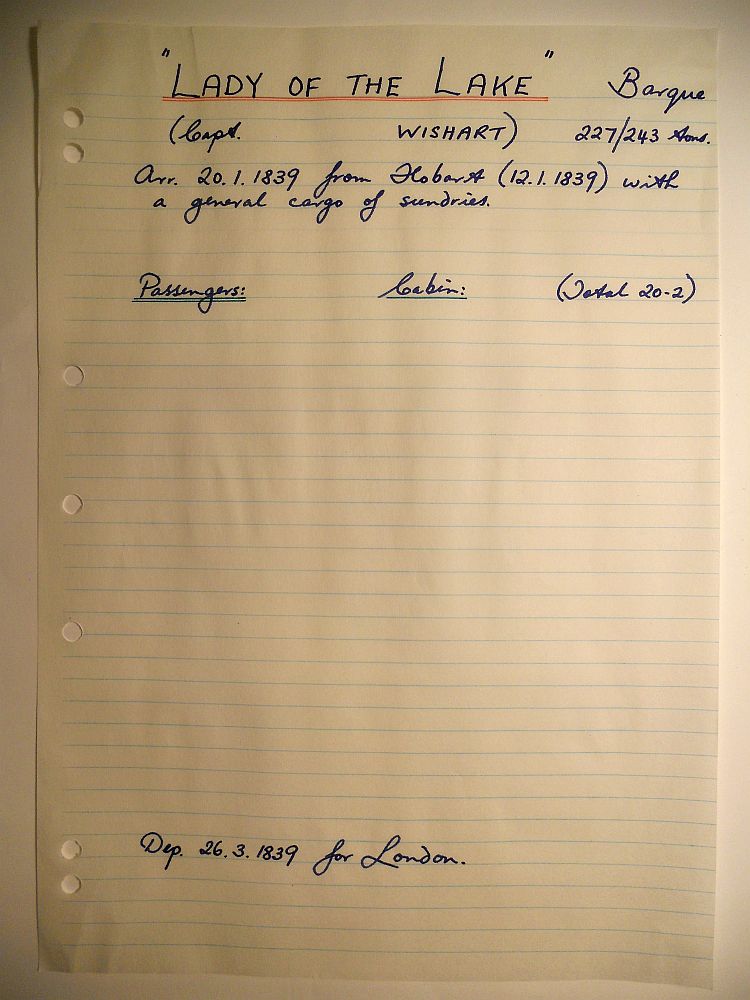 "LADY OF THE LAKE" Barque
(Capt. WISHART) 227/243 tons.
Arr. 20.1.1839 from Hobart (12.1.1839) with
a general cargo of sundries.
Passengers: Cabin: (Total 20-2)
Dep. 26.3.1839 for London.